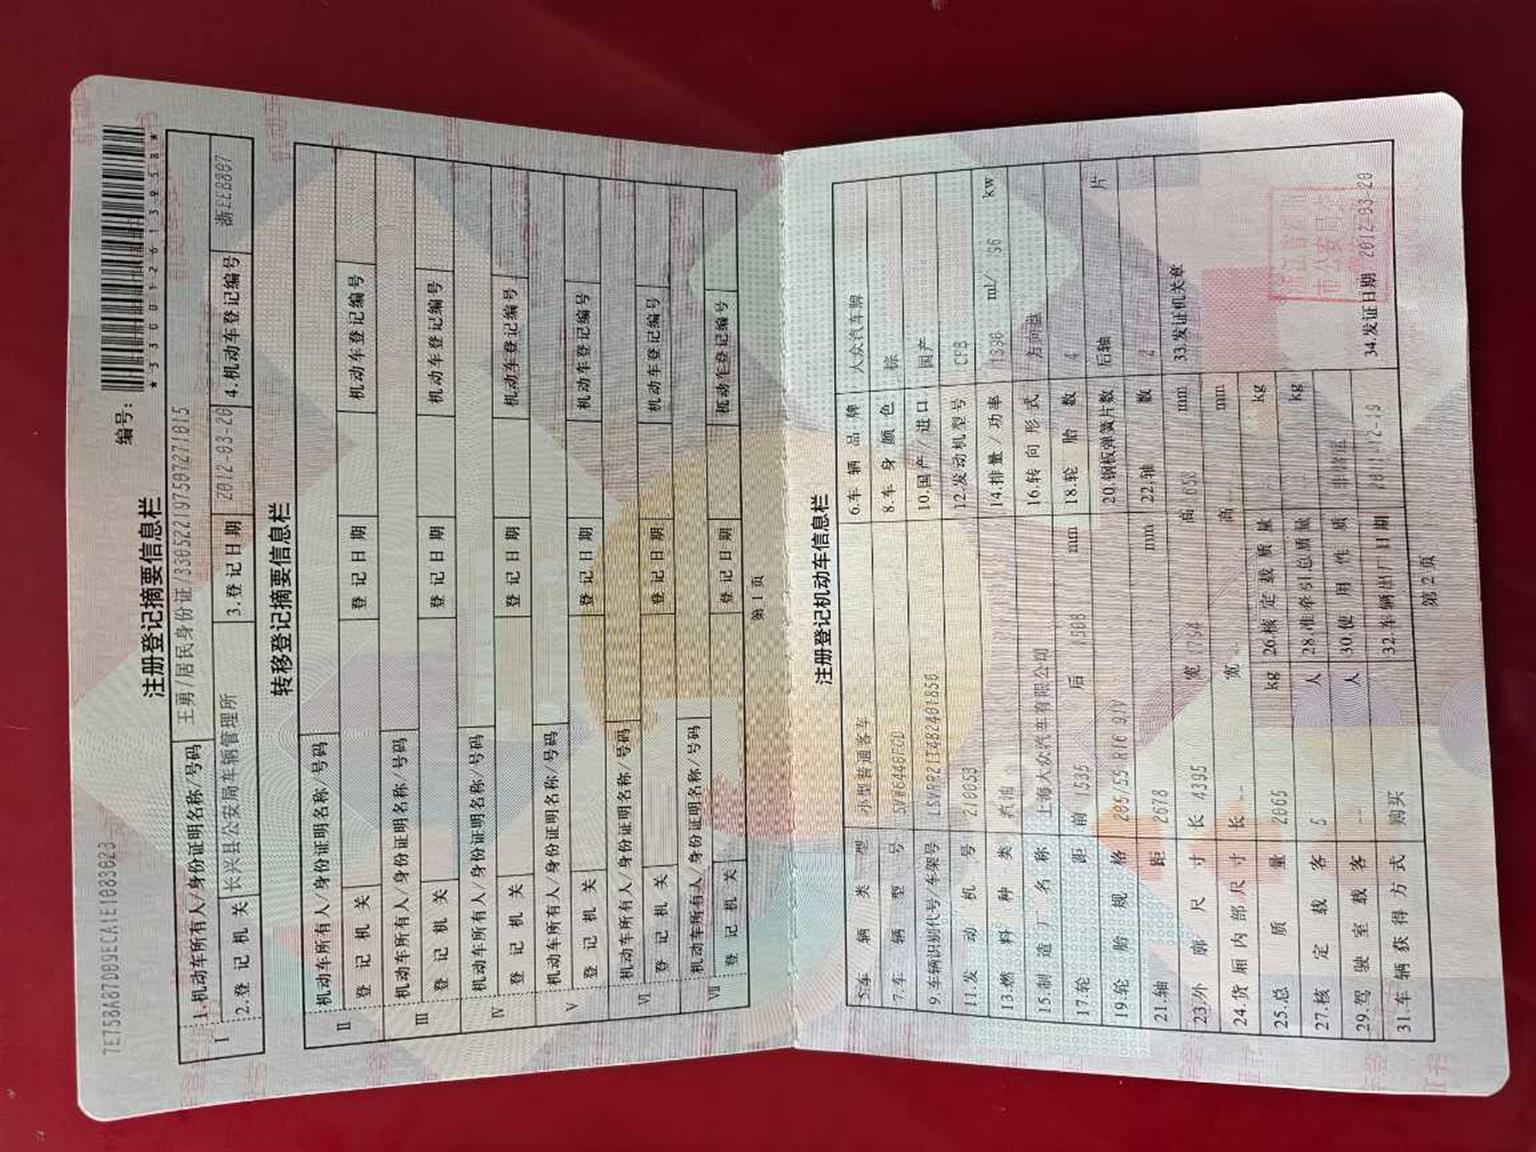 7E758A87D09ECA1E1083023
编号：
*330012613958*
注册登记摘要信息栏
Ⅰ 1.机动车所有人/身份证明名称/号码 王勇/居民身份证/3305221975097271015
2.登记机关 长兴县公安局车辆管理所 3.登记日期 2012-03-20 4.机动车登记编号
转移登记摘要信息栏
Ⅱ 机动车所有人/身份证明名称/号码
登记机关 登记日期 机动车登记编号
Ⅲ 机动车所有人/身份证明名称/号码
登记机关 登记日期 机动车登记编号
Ⅳ 机动车所有人/身份证明名称/号码
登记机关 登记日期 机动车登记编号
Ⅴ 机动车所有人/身份证明名称/号码
登记机关 登记日期 机动车登记编号
Ⅵ 机动车所有人/身份证明名称/号码
登记机关 登记日期 机动车登记编号
Ⅶ 机动车所有人/身份证明名称/号码
登记机关 登记日期 机动车登记编号
第1页
注册登记机动车信息栏
5.车辆类型 小型普通客车 6.车辆品牌 大众汽车牌
7.车辆型号 8.车身颜色 棕
9.车辆识别代号/车架号 10.国产/进口 国产
11.发动机号 210053 12.发动机型号 CFB
13.燃料种类 汽油 14.排量/功率 1390 ml/ 96 kw
15.制造厂名称 上海大众汽车有限公司 16.转向形式 方向盘
17.轮距 前 1535 后 1508 mm 18.轮胎数 4
19.轮胎规格 205/55 R16 91V 20.钢板弹簧片数 后轴 片
21.轴距 2678 mm 22.轴数 2
23.外廓尺寸 长 4395 宽 1794 高 1658 mm 33.发证机关章
24.货厢内部尺寸 长 -- 宽 -- 高 -- mm
25.总质量 2065 kg 26.核定载质量 kg
27.核定载客 5 人 28.准牵引总质量 kg
29.驾驶室载客 -- 人 30.使用性质 非营运
31.车辆获得方式 购买 32.车辆出厂日期 2011-12-19 34.发证日期 2012-03-20
第2页